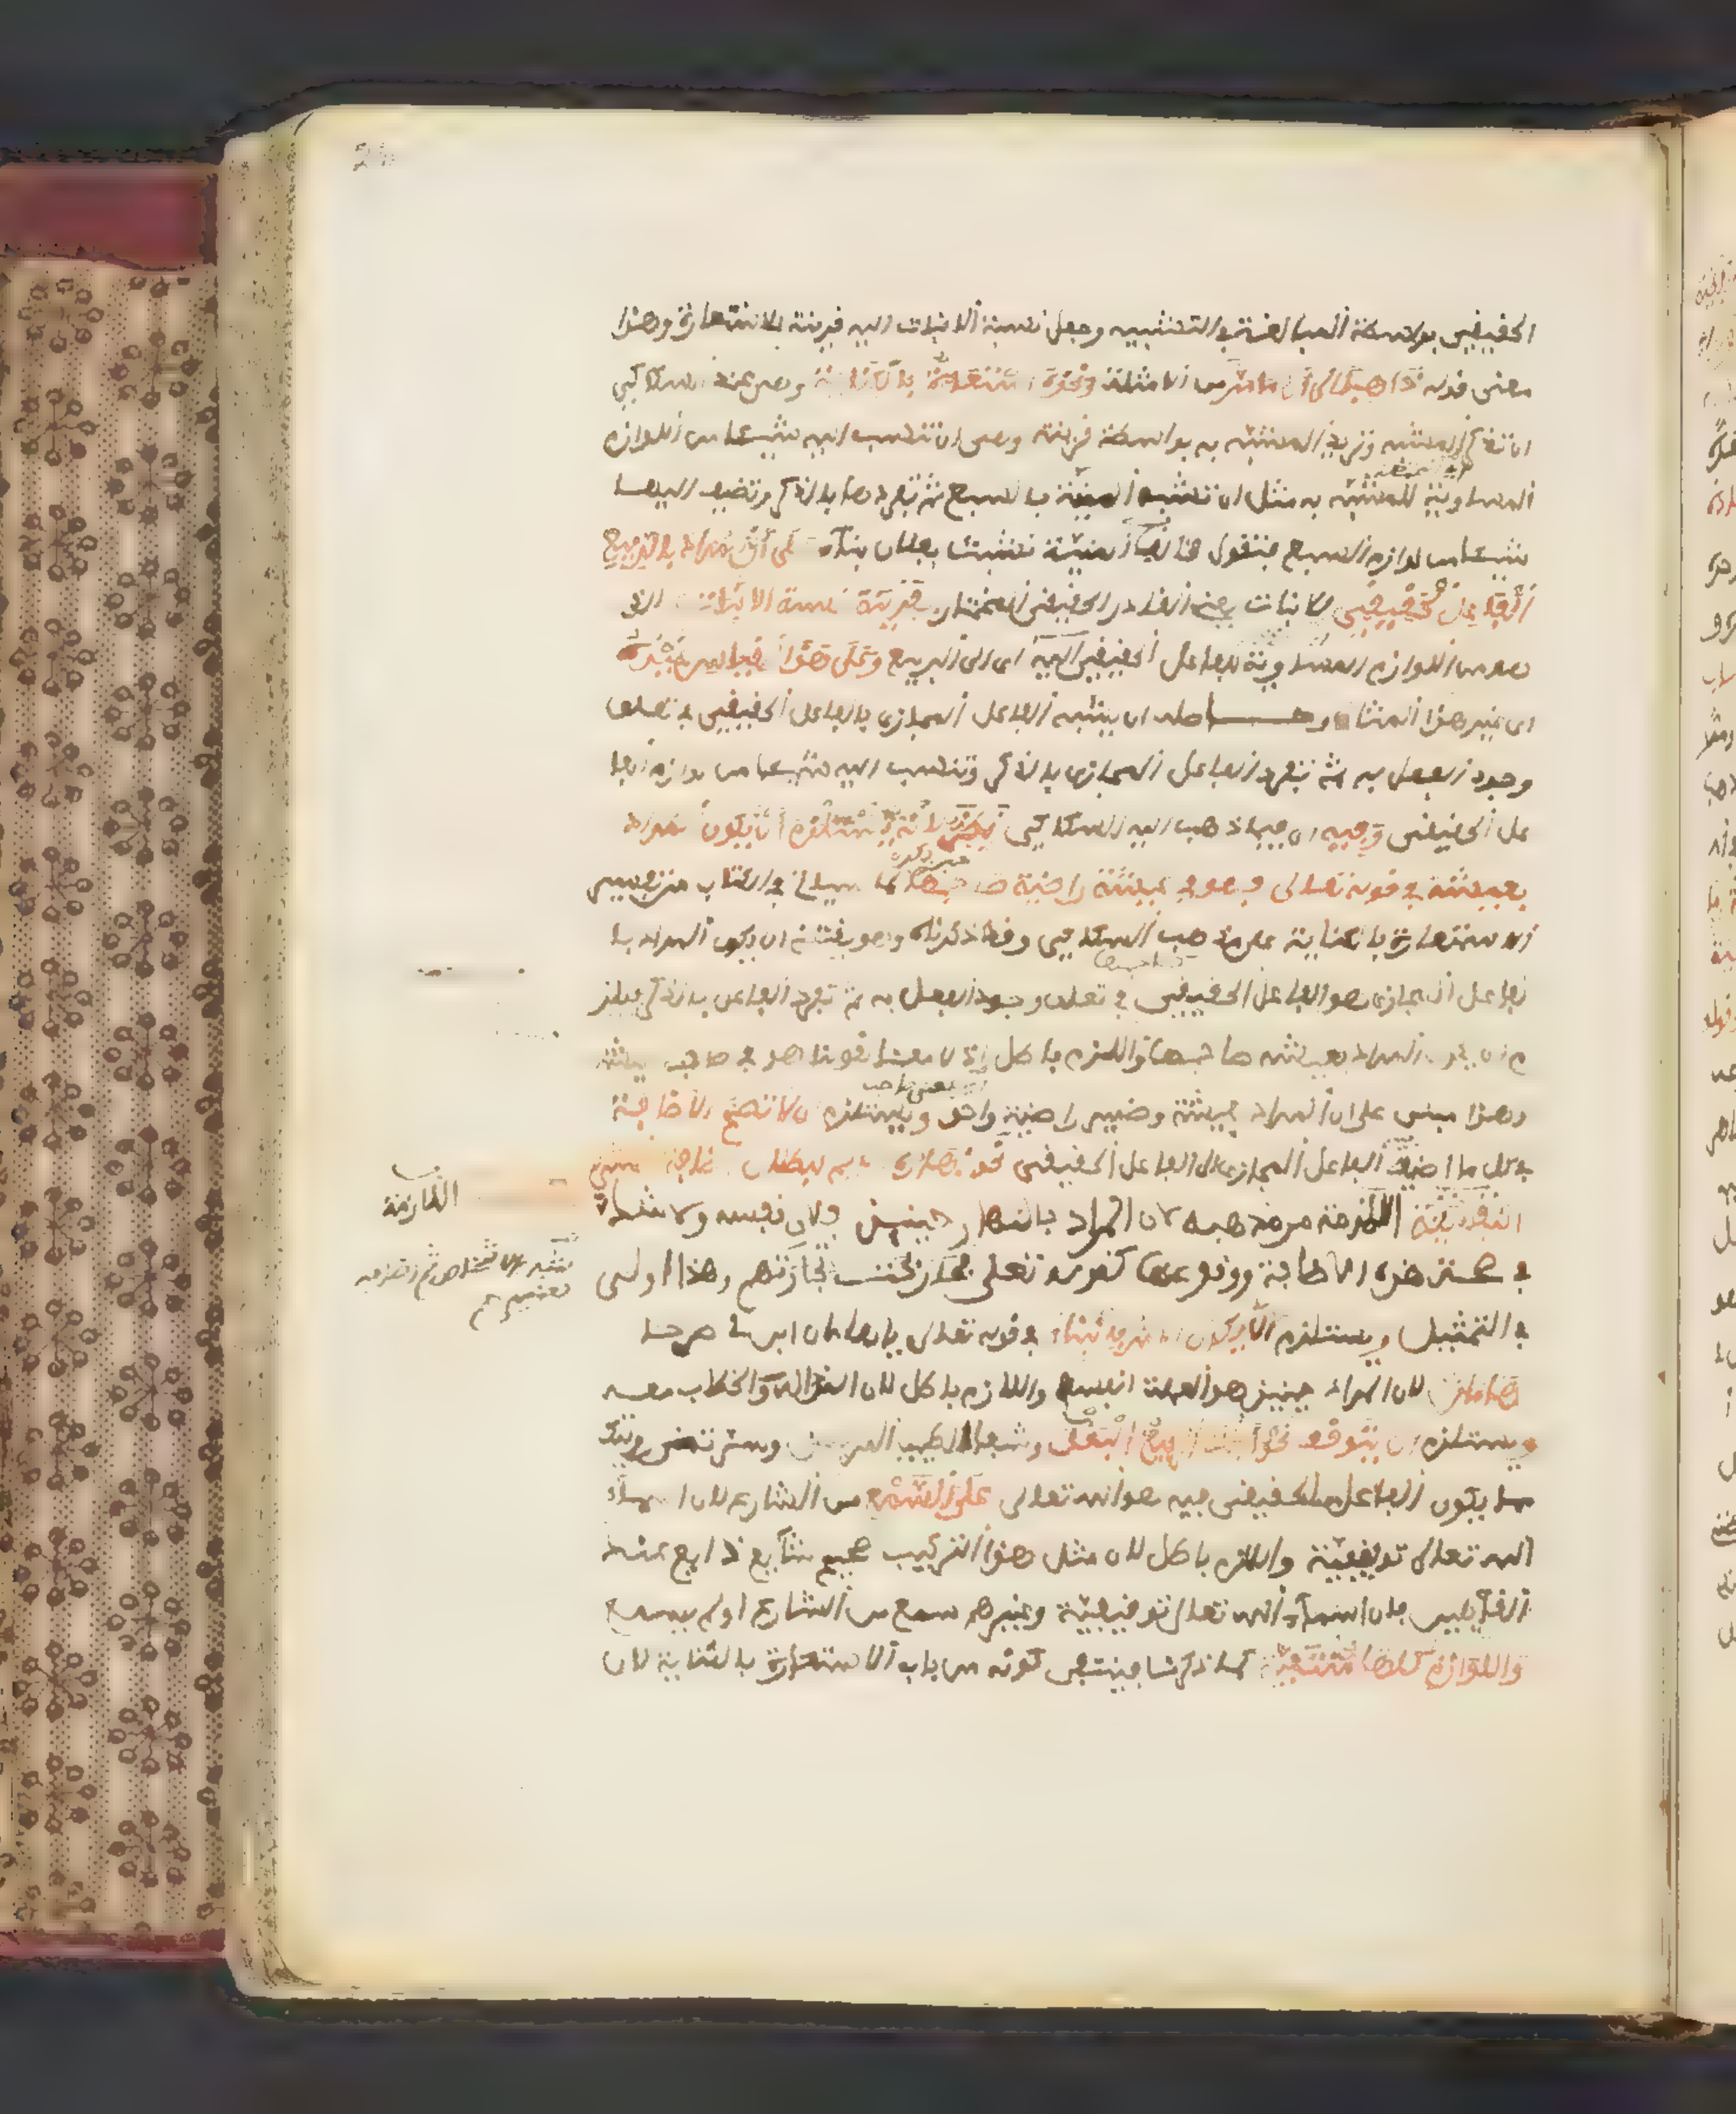 الحقيقي بواسطة المبالغة في التشبيه وجعل نسبة الانبات اليه قرينة للاستعارة وهذا
معنى قوله ذاهبا الى ان ما مر من الامثلة ونحوه استعارة بالكناية وهي عند السكاكي
ان تذكر المشبه وتريد المشبه به بواسطة قرينة وهي ان تنسب اليه شيئا من اللوازم
المساوية للمشبه به مثل ان تشبه المنية بالسبع ثم تفردها بالذكر وتضيف اليها
شيئا من لوازم السبع فتقول مخالب المنية نشبت بفلان بناء على أن المراد بالربيع
الفاعل الحقيقي للانبات يعني القادر المختار بقرينة نسبة الانبات الذي
هو من اللوازم المساوية للفاعل الحقيقي اليه اى الى الربيع وعلى هذا القياس غيره
اى غير هذا المثال وحاصله ان يشبه الفاعل المجازى بالفاعل الحقيقي في تعلق
وجود الفعل به ثم تفرد الفاعل المجازى بالذكر وتنسب اليه شيئا من لوازم الفا
عل الحقيقي وفيه اى فيما ذهب اليه السكاكي نظر لانه يستلزم أن يكون المراد
بعيشة في قوله تعالى فهو في عيشة راضية صاحبها كما سياتي في الكتاب من تفسير
الاستعارة بالكناية على مذهب السكاكي وقد ذكرناه وهو يقتضي ان يكون المراد با
لفاعل المجازى هو الفاعل الحقيقي في تعلق وجود الفعل به ثم تفرد الفاعل بالذكر فيلز
م ان يكون المراد بعيشة صاحبها واللازم باطل اذ لا معنى لقولنا هو في صاحب عيشة
وهذا مبنى على ان المراد بعيشة وضمير راضية واحد ويستلزم ان لا تصح الاضافة
في كل ما اضيف الفاعل المجازى الى الفاعل الحقيقي نحو نهاره صائم لبطلان اضافة الشيء
اللازمة من مذهبه لان المراد بالنهار حينئذ فلان نفسه ولا شك
في صحة هذه الاضافة ووقوعها كقوله تعلى فما ربحت تجارتهم وهذا اولى
في التمثيل ويستلزم ألا يكون الامر بالبناء في قوله تعالى ياهامان ابن لى صرحا
لهامان لان المراد حينئذ هو العملة انفسهم واللازم باطل لان النداء له والخطاب معه
ويستلزم ان يتوقف نحو أنبت الربيع البقل وشفى الطبيب المريض وسرتني رؤيتك
مما يكون الفاعل الحقيقي فيه هو الله تعالى على السمع من الشارع لان اسماء
الله تعالى توقيفية واللازم باطل لان مثل هذا التركيب صحيح شائع ذائع عند
القائلين بان اسماء الله تعالى توقيفية وغيرهم سمع من الشارع او لم يسمع
واللوازم كلها منتفية كما ذكرنا فينتفي كونه من باب الاستعارة بالكناية لان